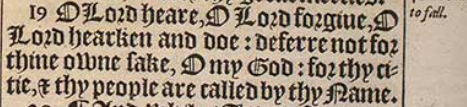 19 O Lord heare, O Lord forgiue, O
Lord hearken and doe : deferre not for
thine owne sake, O my God : for thy ci-
tie, & thy people are called by thy Name.
to fall.